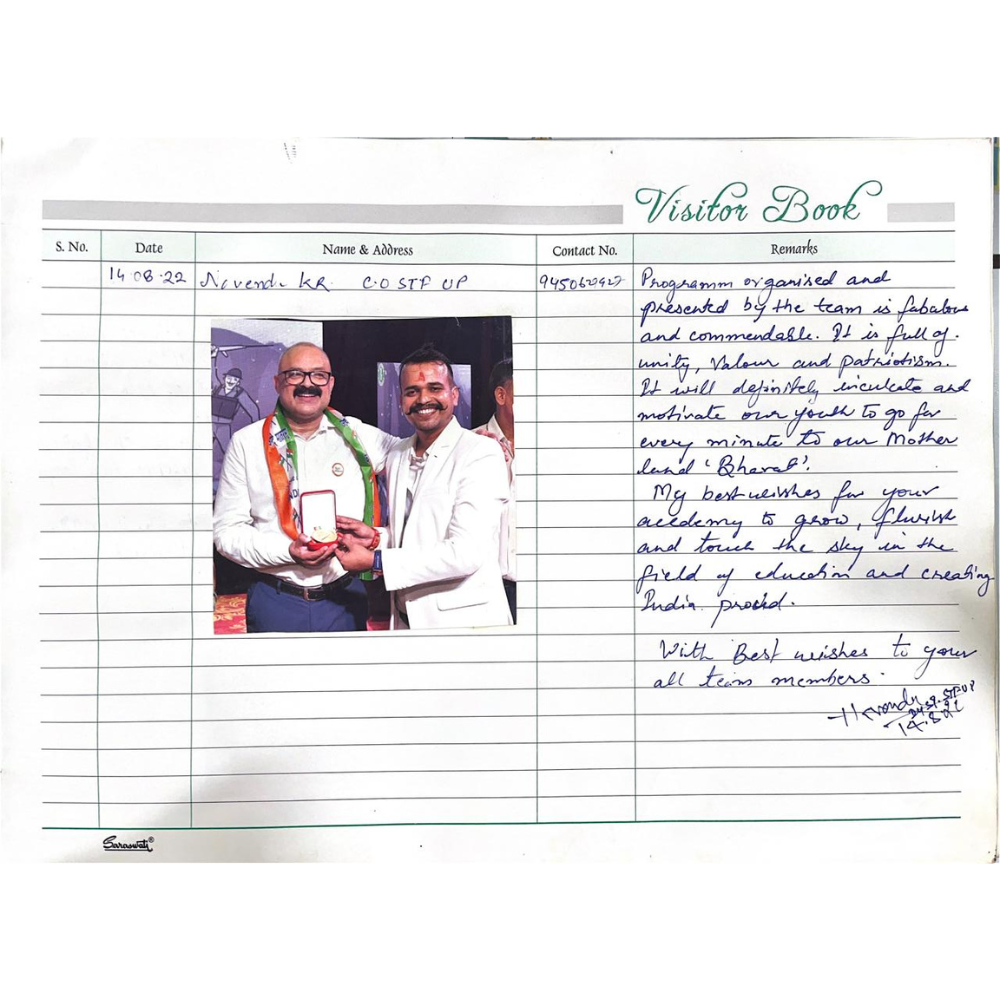 Visitor Book
S. No. Date Name & Address Contact No. Remarks
14.08.22 Navendu KR. C.O STF UP
Programm organised and
presented by the team is fabulous
and commendable. It is full of
unity, Valour and patriotism.
It will definitely inculcate and
motivate our youth to go for
every minute to our Mother
land 'Bharat'.
My best wishes for your
accedemy to grow, flurish
and touch the sky in the
field of education and creating
India proud.
With Best wishes to your
all team members.
Dy SP. STF UP
14.8.22
Saraswati®